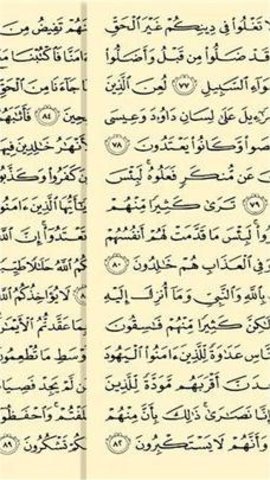 لَا تَغْلُوا۟ فِى دِينِكُمْ غَيْرَ ٱلْحَقِّ
قَدْ ضَلُّوا۟ مِن قَبْلُ وَأَضَلُّوا۟
وَآءِ ٱلسَّبِيلِ ٧٧ لُعِنَ ٱلَّذِينَ
ءِيلَ عَلَىٰ لِسَانِ دَاوُۥدَ وَعِيسَى
صَوا۟ وَّكَانُوا۟ يَعْتَدُونَ ٧٨
عَن مُّنكَرٍ فَعَلُوهُ ۚ لَبِئْسَ
٧٩ تَرَىٰ كَثِيرًا مِّنْهُمْ
وا۟ لَبِئْسَ مَا قَدَّمَتْ لَهُمْ أَنفُسُهُمْ
وَفِى ٱلْعَذَابِ هُمْ خَٰلِدُونَ ٨٠
بِٱللَّهِ وَٱلنَّبِىِّ وَمَآ أُنزِلَ إِلَيْهِ
لَٰكِنَّ كَثِيرًا مِّنْهُمْ فَٰسِقُونَ
نَّاسِ عَدَٰوَةً لِّلَّذِينَ ءَامَنُوا۟ ٱلْيَهُودَ
دَنَّ أَقْرَبَهُم مَّوَدَّةً لِّلَّذِينَ
إِنَّا نَصَٰرَىٰ ۚ ذَٰلِكَ بِأَنَّ مِنْهُمْ
وَأَنَّهُمْ لَا يَسْتَكْبِرُونَ ٨٢
نَهُمْ تَفِيضُ مِنَ
ءَامَنَّا فَٱكْتُبْنَا مَ
مَا جَآءَنَا مِنَ ٱلْحَقِّ
حِينَ ٨٤ فَأَثَٰبَهُ
أَنْهَٰرُ خَٰلِدِينَ فِي
نَ كَفَرُوا۟ وَكَذَّبُ
يَٰٓأَيُّهَا ٱلَّذِينَ ءَامَنُو
تَعْتَدُوٓا۟ ۚ إِنَّ ٱللَّهَ
كُمُ ٱللَّهُ حَلَٰلًا طَيِّبً
لَا يُؤَاخِذُكُمُ ٱللَّ
مَا عَقَّدتُّمُ ٱلْأَيْمَٰنَ
وْسَطِ مَا تُطْعِمُونَ
مَن لَّمْ يَجِدْ فَصِيَا
لَفْتُمْ ۚ وَٱحْفَظُو
كُمْ تَشْكُرُونَ ٨٩